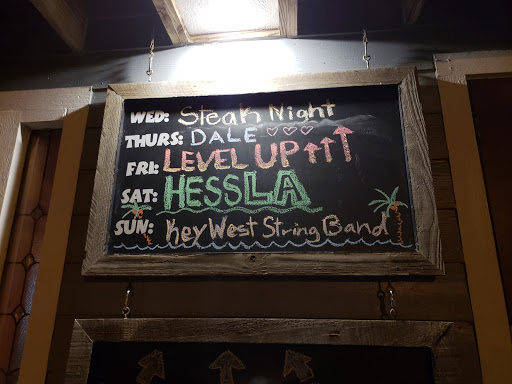 WED: Steak Night
THURS: DALE
FRI: LEVEL UP
SAT: HESSLA
SUN: Key West String Band